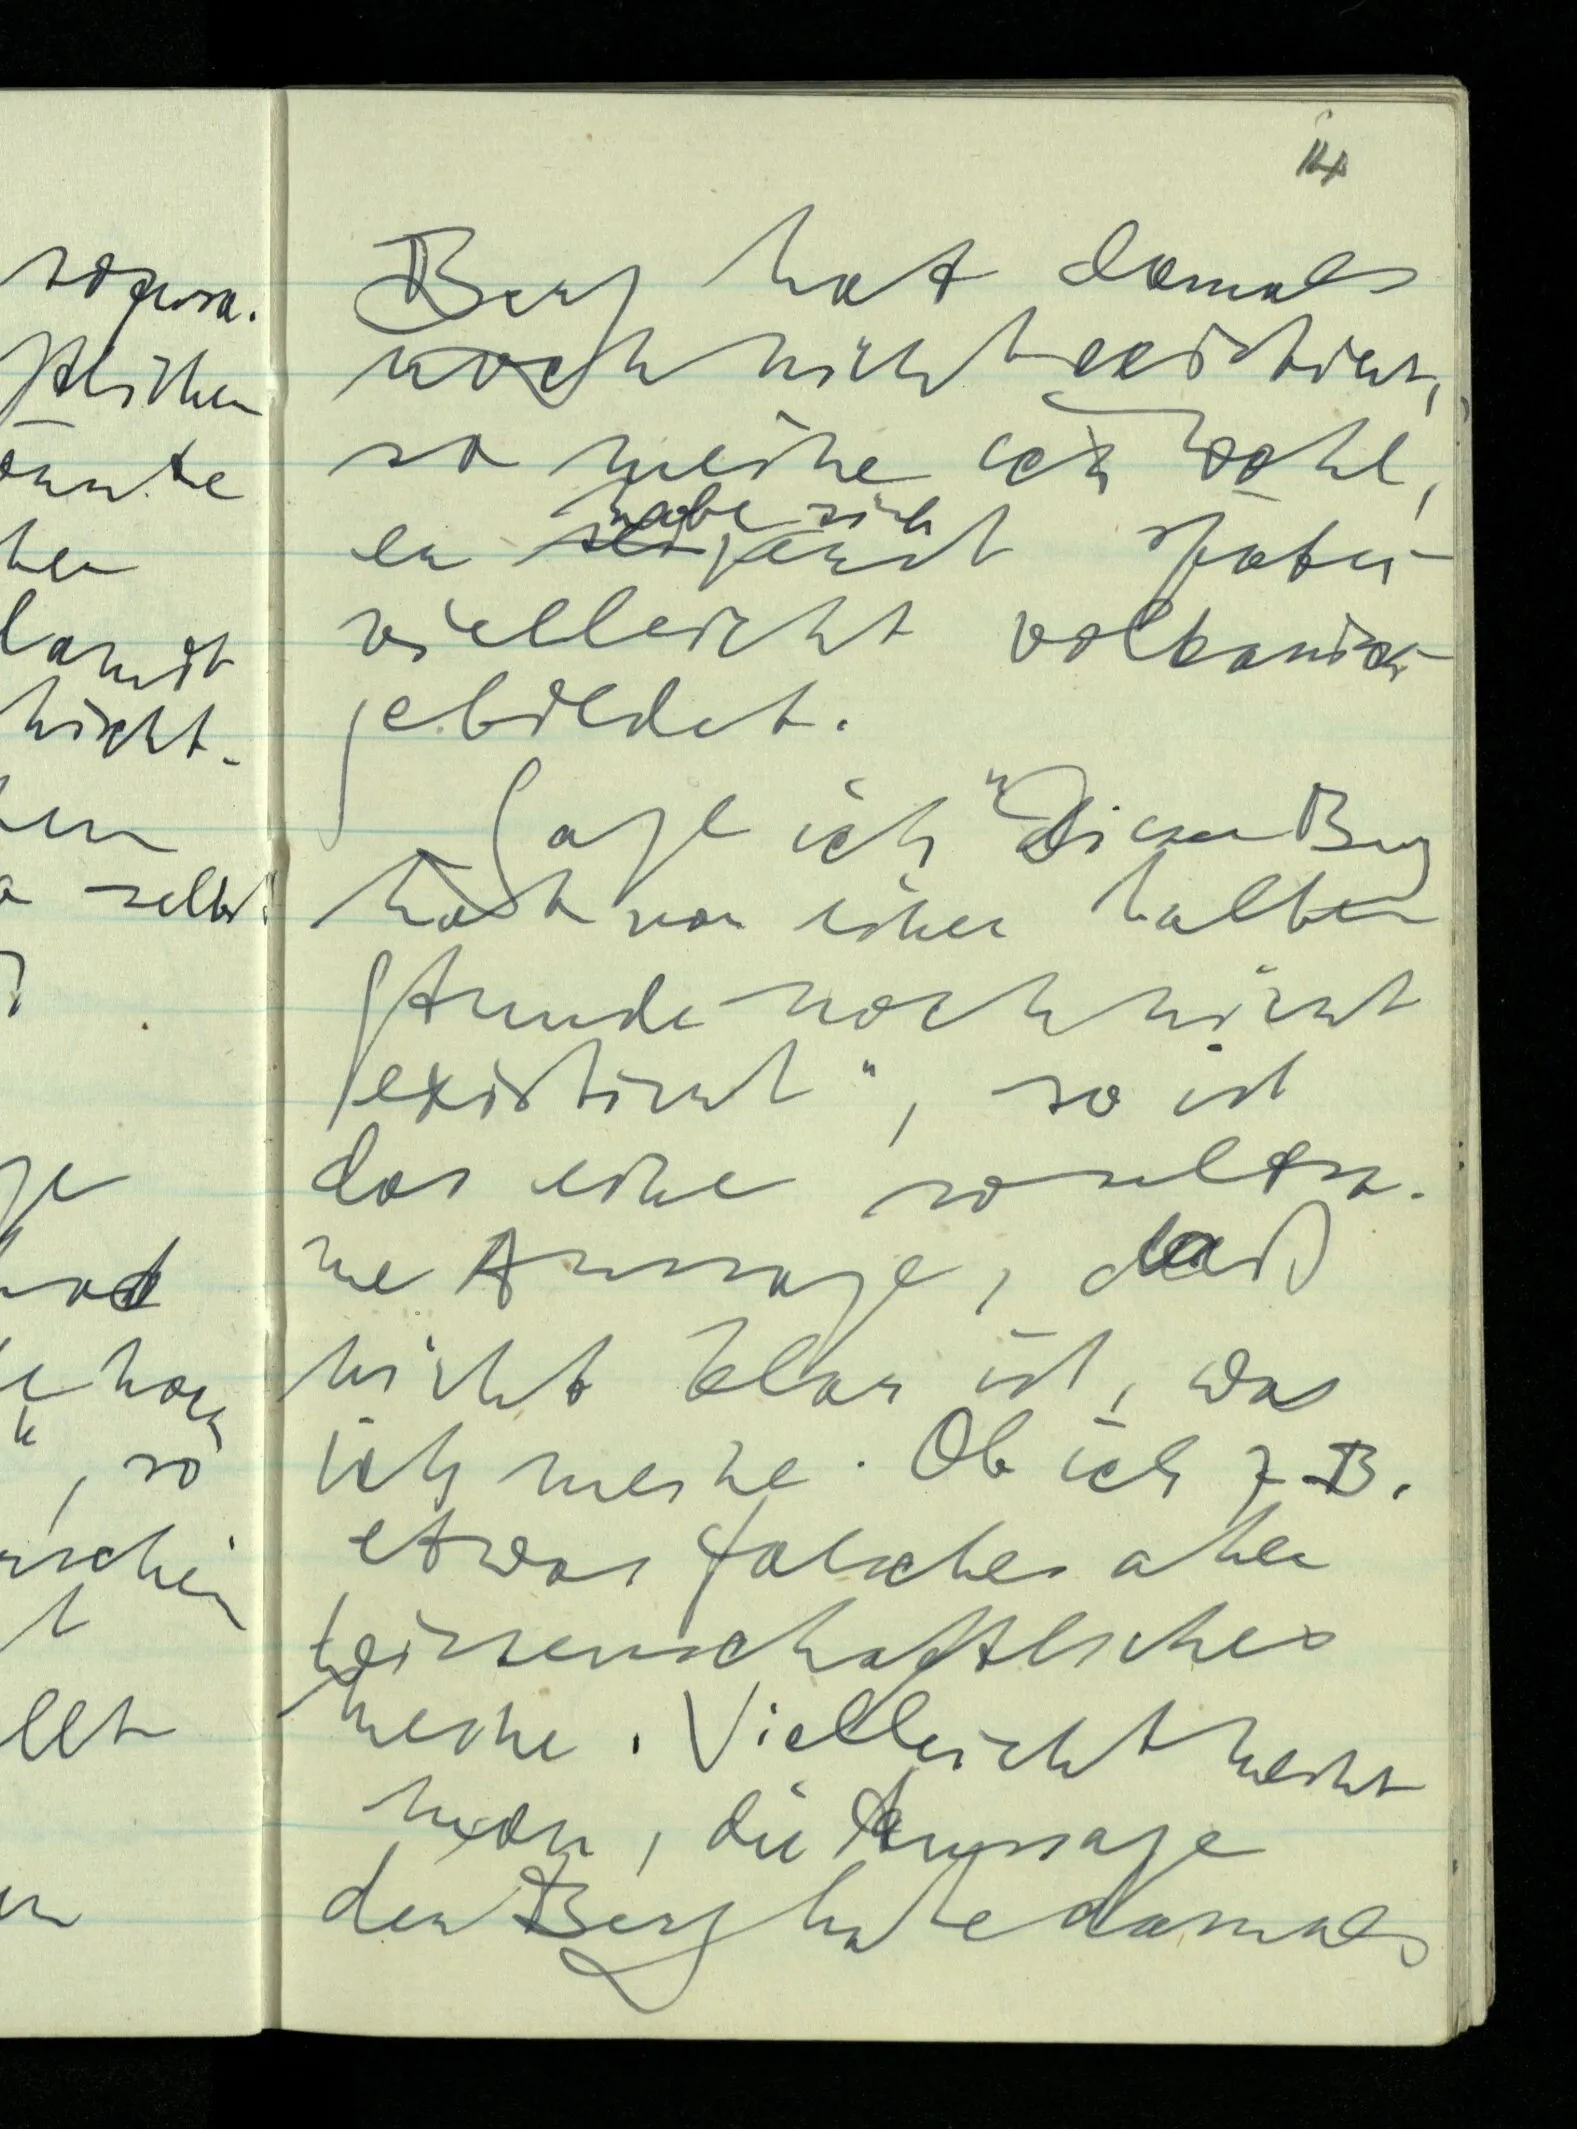 sogena.
ftlichen
önnte
her
damit
nicht.
selbst
ge
hat
noch
", so
ischen
llt
14
Berg hat damals
noch nicht existiert,
so meine ich wohl,
er sei habe sich erst später
vielleicht volkanisch
gebildet.
Sage ich "Dieser Berg
hat vor einer halben
Stunde noch nicht
existiert", so ist
das eine so seltsa-
me Aussage, daß
nicht klar ist, was
ich meine. Ob ich z.B.
etwas falsches aber
wissenschaftliches
meine. Vielleicht meint
man, die Aussage
der Berg habe damals